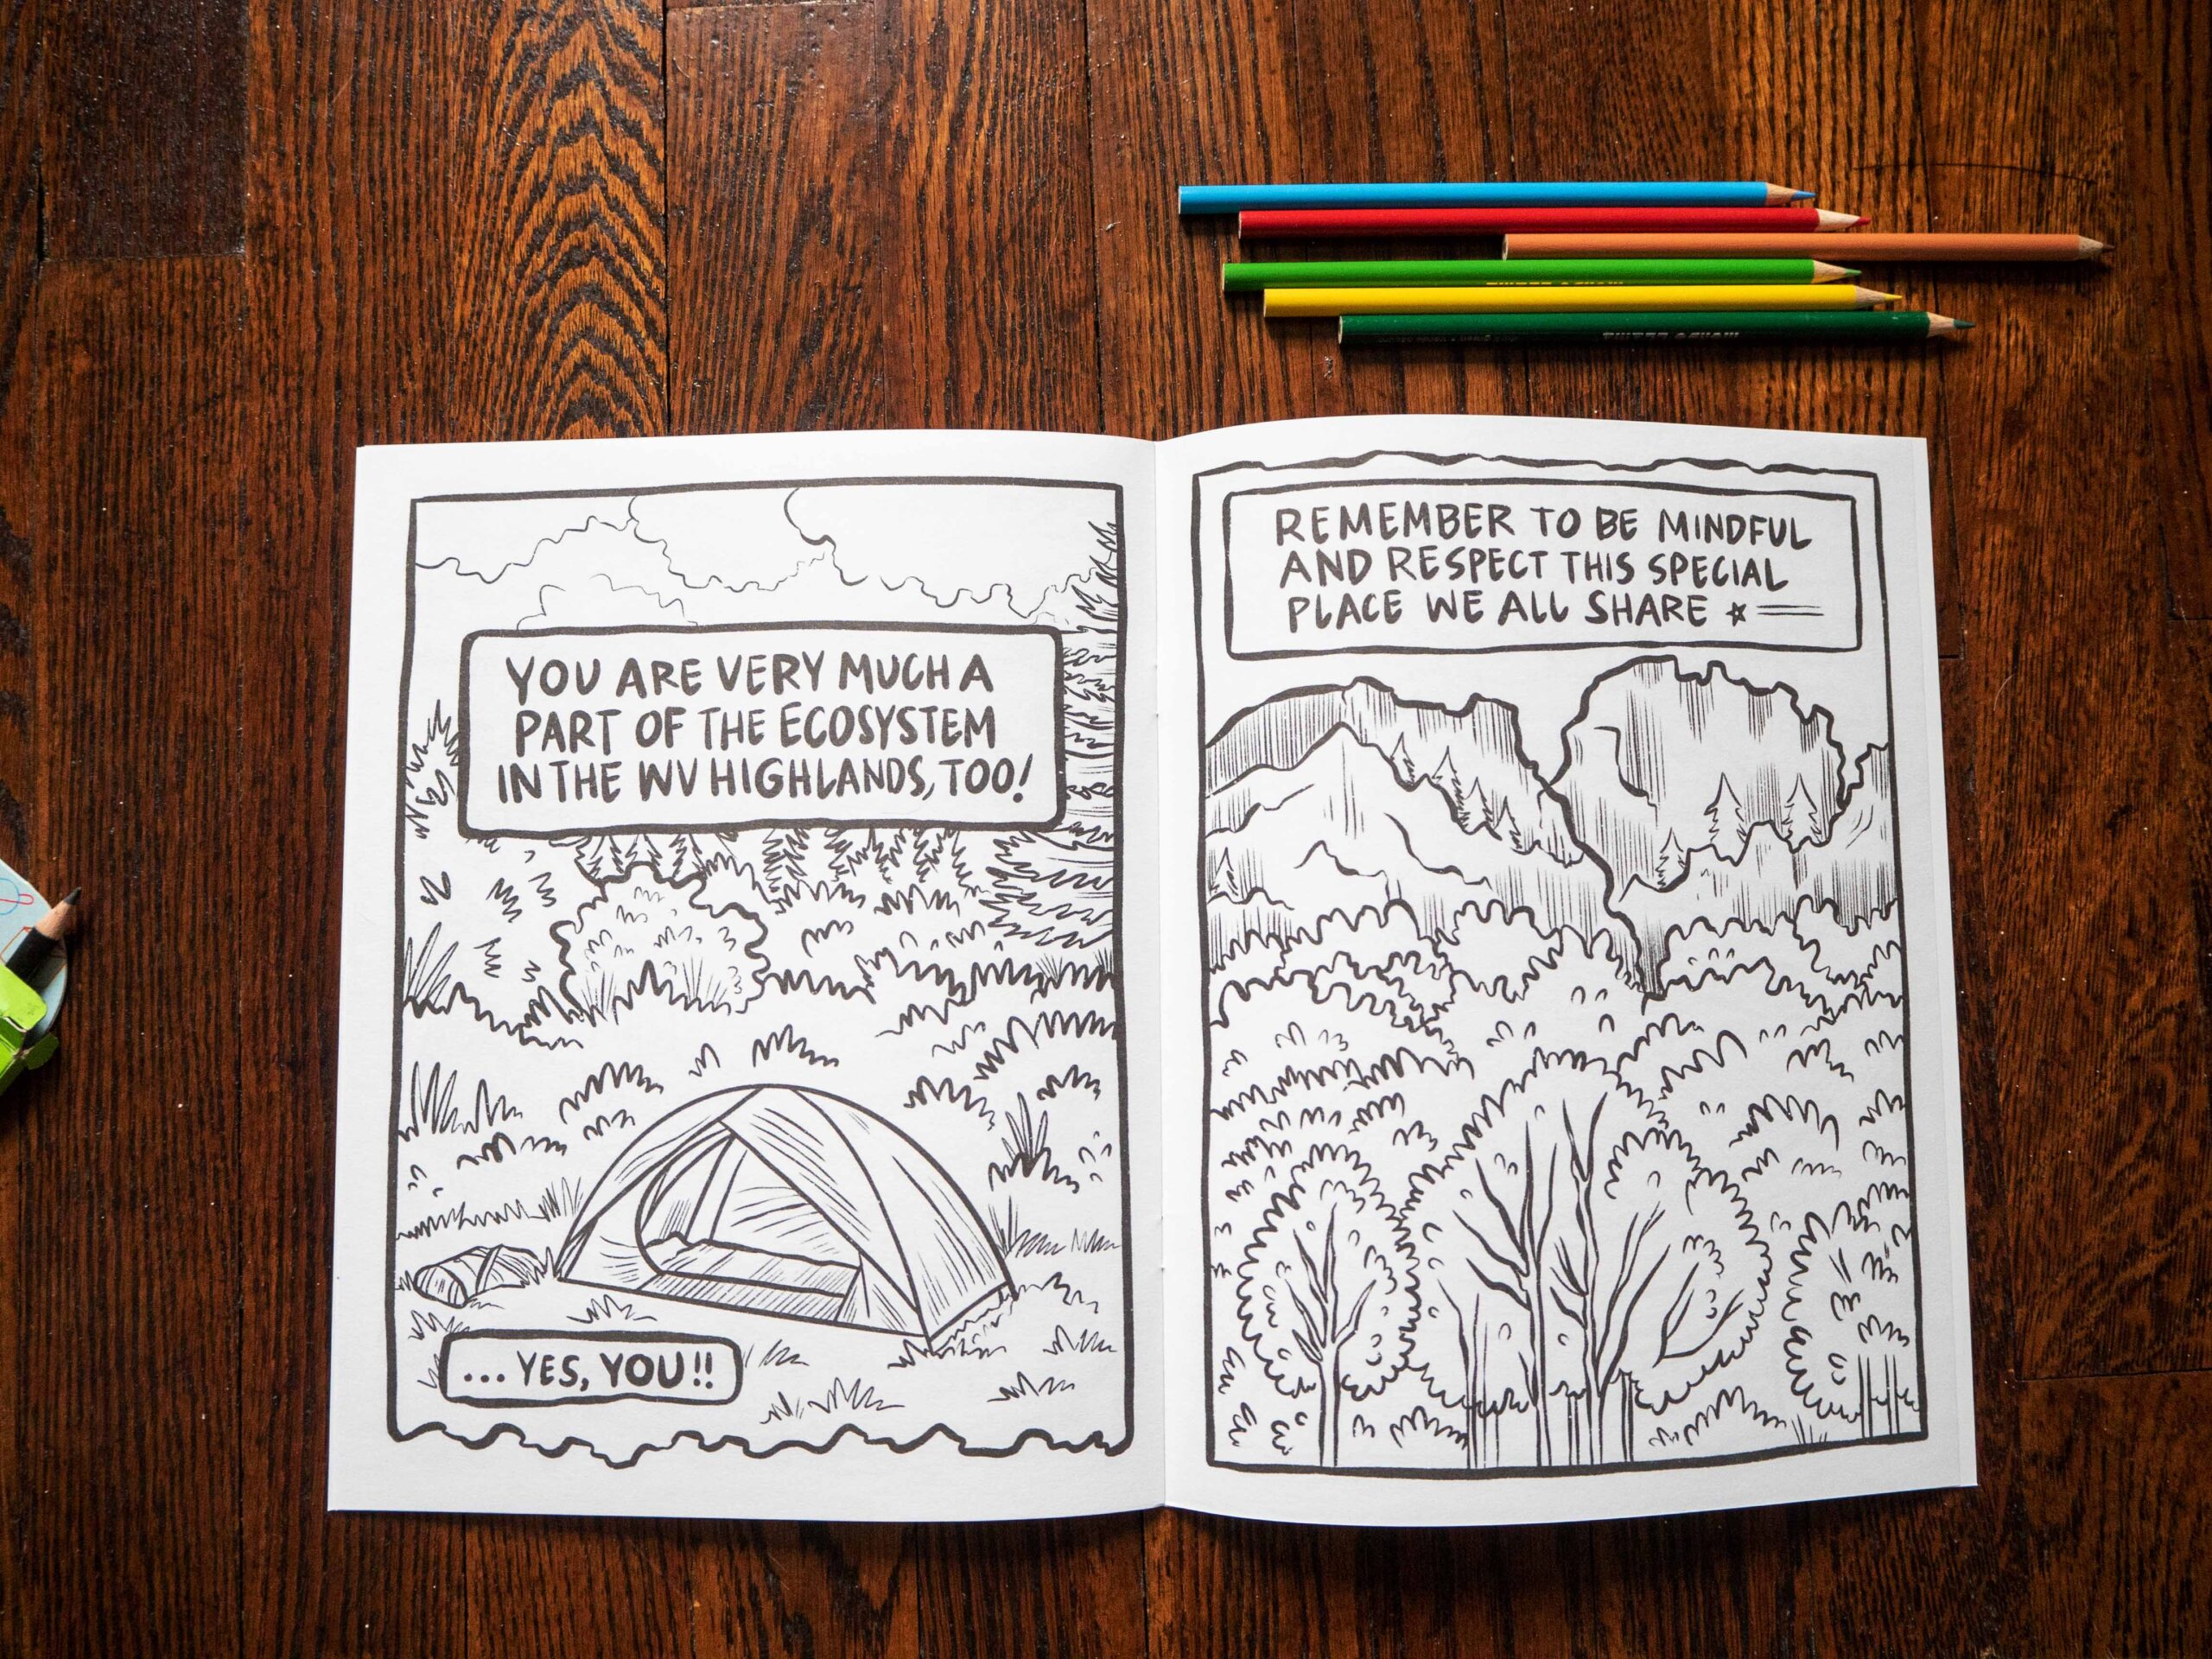 YOU ARE VERY MUCH A
PART OF THE ECOSYSTEM
IN THE WV HIGHLANDS, TOO!
... YES, YOU!!
REMEMBER TO BE MINDFUL
AND RESPECT THIS SPECIAL
PLACE WE ALL SHARE